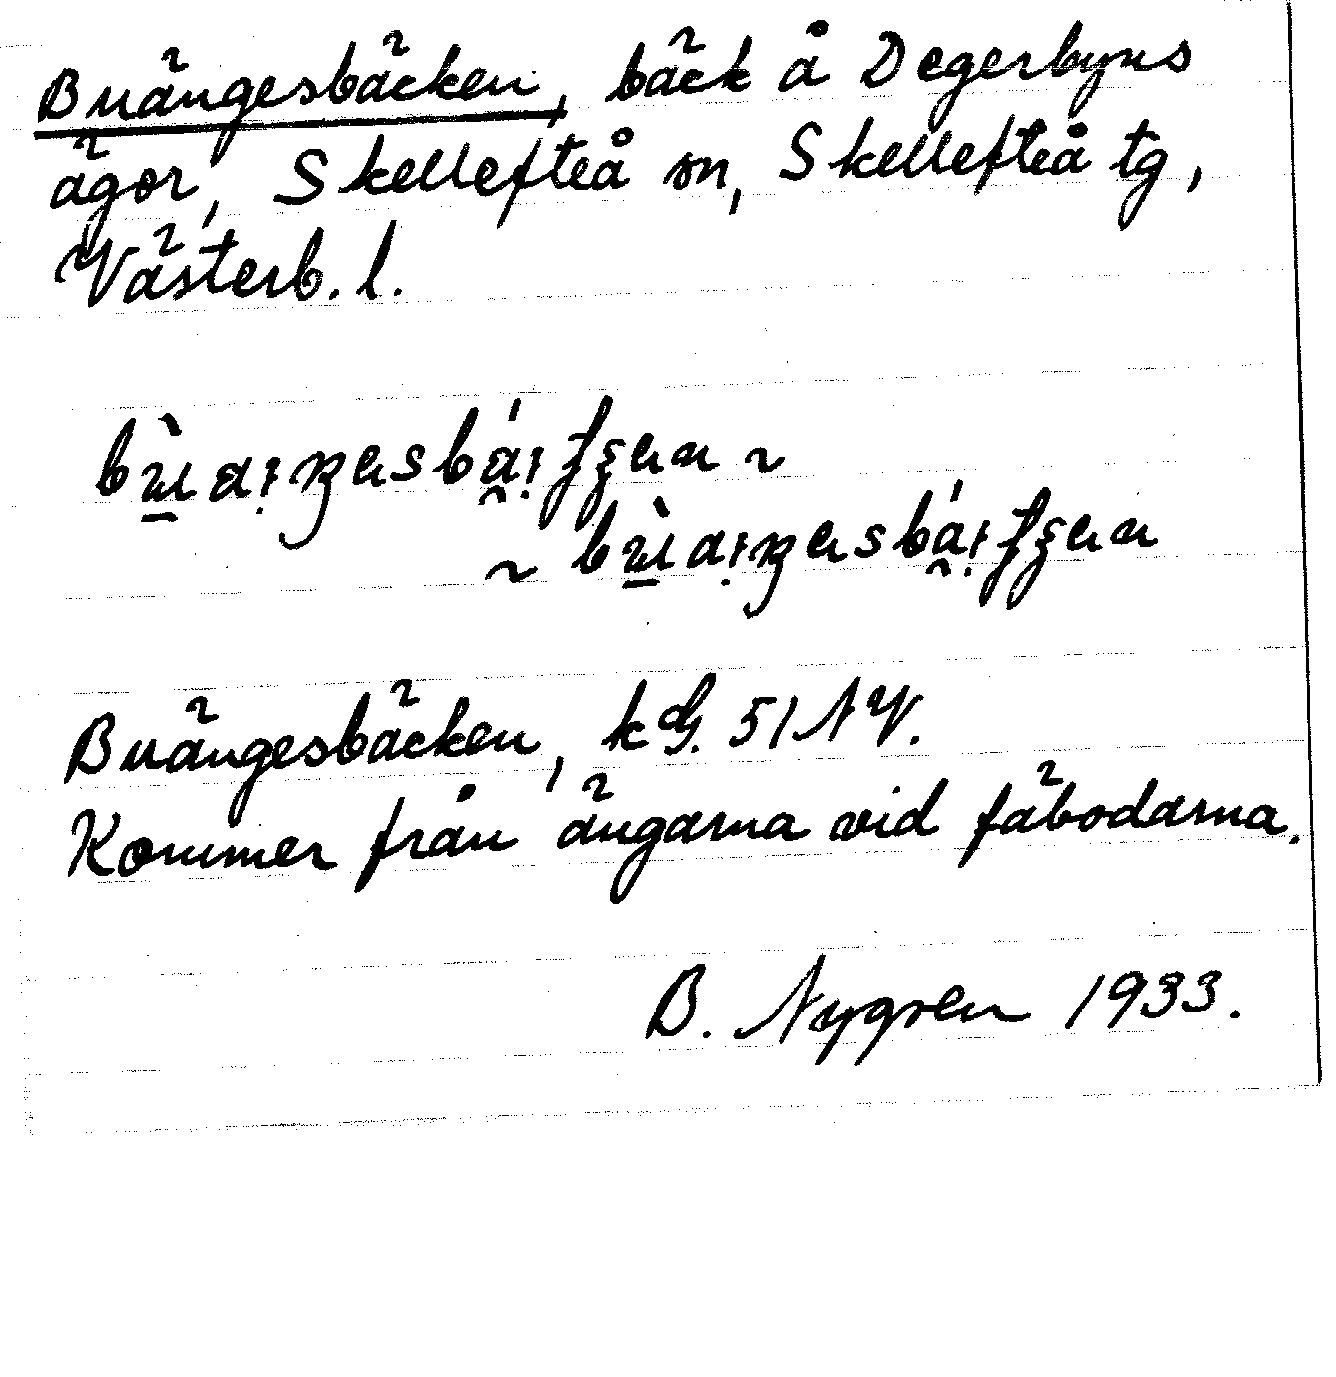 Buängesbäcken, bäck å Degerbyns
ägor, Skellefteå sn, Skellefteå tg,
Västerb. l.
Buängesbäcken, kG. 51 NV.
Kommer från ängarna vid fäbodarna.
B. Nygren 1933.